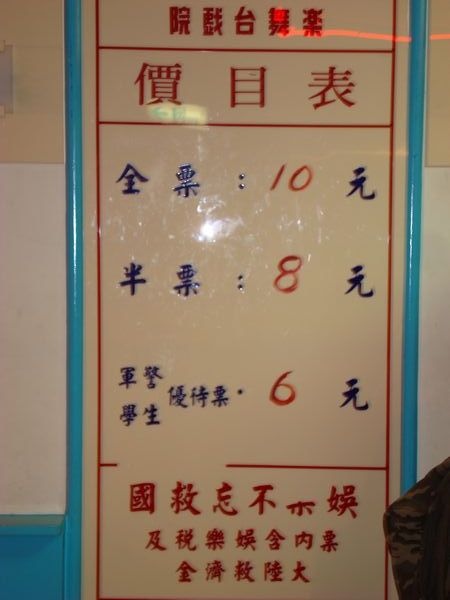 楽舞台戯院
價目表
全票：10元
半票：8元
軍警
學生
優待票：6元
娛不忘救國
票內含娛樂稅及
大陸救濟金